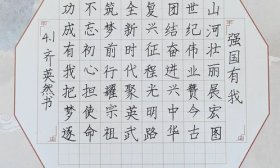 强国有我
山河壮丽展宏图
世纪伟业赞古今
团结奋进兴中华
复兴征程光明路
全新时代聚英武
筑梦前行耀宗祖
不忘初心担使命
功成有我把梦逐
4.1齐英然书